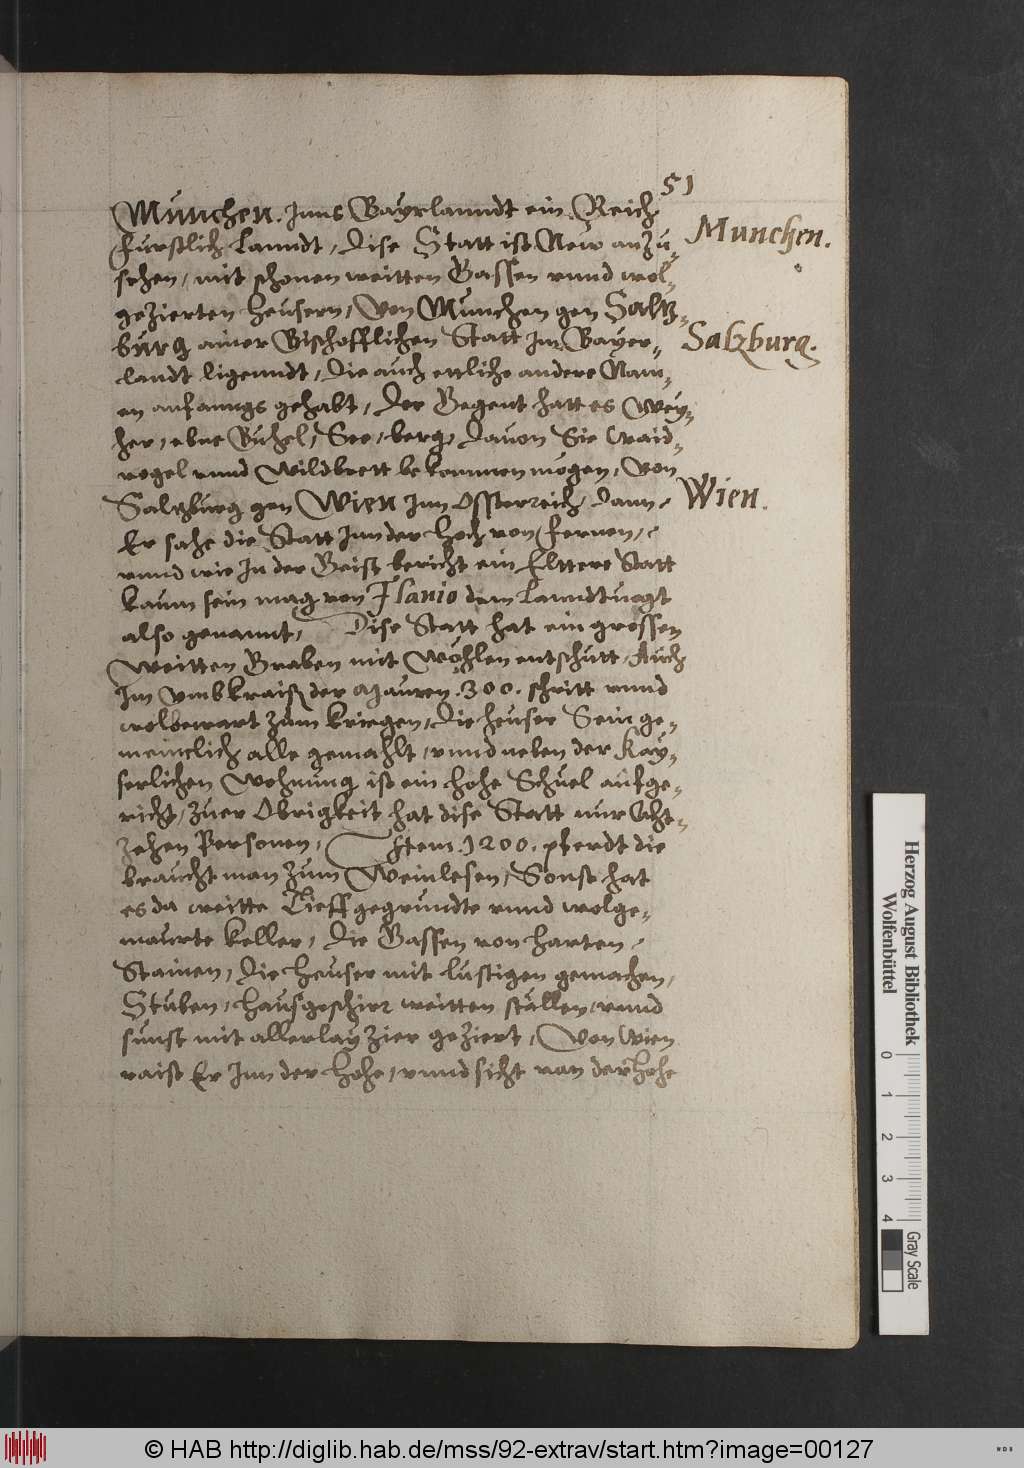 51
München. Inns Bayrlanndt ein Reich
fürstlich Lanndt, Dise Statt ist New anzu-
München.
sehen, mit schonen weitten Gassen vnnd wol-
gezierten Heusern, Von München gen Saltz-
burg ainer Bischofflichen Statt Im Bayer-
Salzburg.
landt ligenndt, Die auch ettliche andere Nam-
en anfanngs gehabt, Der Gegent hatt es Wey-
her, ebne Buhel, See, berg, Dauon Sie Waid-
vogel vnnd Wildbrett bekommen mögen, Von
Saltzburg gen Wien Inn Ossterreich, Dann
Wien.
Er sahe die Statt Inn der Hoch von fernen,
vnnd wie In der Geist bericht ein Elttere Statt
kaum sein mag von Flanio dem Lanndtuogt
also genannt, Dise Statt hat ein grossen
Weitten Graben mit Wöhlen entschutt, Auch
Im vmbkraiß der Mauren .300. schritt vnnd
wolbewart zum kriegen, Die heuser Sein ge-
meinclich alle gemahlt, vnnd neben der Kay-
serlichen Wohnung ist ein hohe Schuel aufge-
richt, Zuer Obrigkeit hat dise Statt nur Acht-
zehen Personen, Item .1200. pferdt die
braucht man zum Weinlesen, Sonst hat
es da weitte Tieff gegrundte vnnd wolge-
maurte keller, Die Gassen von harten
Stainen, Die heuser mit lustigen gemachen,
Stuben, hausgeschirr weitten ställen, vnnd
sunst mit allerlay zier geziert, Von Wien
raist Er Inn der Hohe, vnnd sicht von der Hohe
Herzog August Bibliothek
Wolfenbüttel
0 1 2 3 4
Gray Scale
© HAB http://diglib.hab.de/mss/92-extrav/start.htm?image=00127